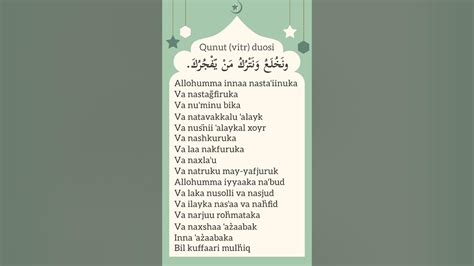 Qunut (vitr) duosi
ونَخْلَعُ وَنَتْرُكُ مَنْ يَّفْجُرُكَ.
Allohumma innaa nasta'iinuka
Va nastağfiruka
Va nu'minu bika
Va natavakkalu 'alayk
Va nusñii 'alaykal xoyr
Va nashkuruka
Va laa nakfuruka
Va naxla'u
Va natruku may-yafjuruk
Allohumma iyyaaka na'bud
Va laka nusolli va nasjud
Va ilayka nas'aa va nañfid
Va narjuu roñmataka
Va naxshaa 'ażaabak
Inna 'ażaabaka
Bil kuffaari mulñiq